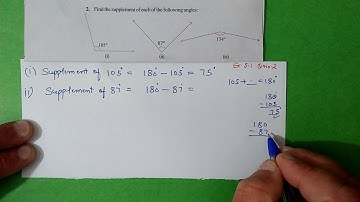 2. Find the supplement of each of the following angles:
105°
87°
154°
(i)
(ii)
(iii)
(i) Supplement of 105° = 180° - 105° = 75°
ii) Supplement of 87° = 180° - 87° =
Ex 5.1
105 + _ = 180°
180
- 105
75
180
- 87